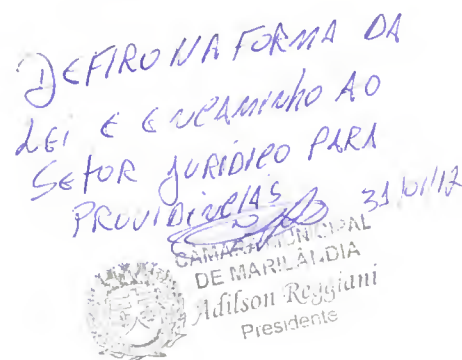 DEFIRO NA FORMA DA
LEI E ENCAMINHO AO
SETOR JURÍDICO PARA
PROVIDÊNCIAS
31/01/17
CÂMARA MUNICIPAL
DE MARILÂNDIA
Adilson Reggiani
Presidente